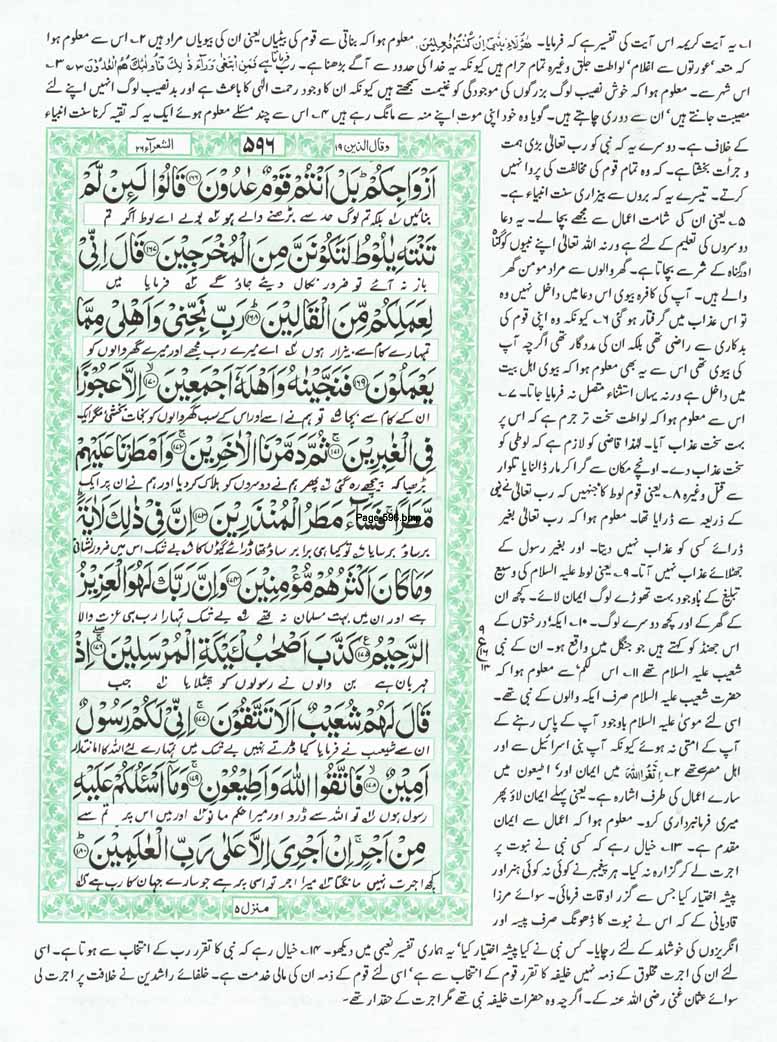 ۱؎ یہ آیت کریمہ اس آیت کی تفسیر ہے کہ فرمایا۔ هٰٓؤُلَآءِ بَنٰتِىْٓ اِنْ كُنْتُمْ فٰعِلِيْنَ۔ معلوم ہوا کہ بناتی سے قوم کی بیٹیاں یعنی ان کی بیویاں مراد ہیں ۲؎ اس سے معلوم ہوا
کہ متعہ' عورتوں سے اغلام' لواطت جلق وغیرہ تمام حرام ہیں کیونکہ یہ خدا کی حدود سے آگے بڑھنا ہے۔ رب فرماتا ہے فَمَنِ ابْتَغٰى وَرَآءَ ذٰلِكَ فَاُولٰٓئِكَ هُمُ الْعٰدُوْنَ ۳؎
اس شہر سے۔ معلوم ہوا کہ خوش نصیب لوگ بزرگوں کی موجودگی کو غنیمت سمجھتے ہیں کیونکہ ان کا وجود رحمت الٰہی کا باعث ہے اور بدنصیب لوگ انہیں اپنے لئے
مصیبت جانتے ہیں' ان سے دوری چاہتے ہیں۔ گویا وہ خود اپنی موت اپنے منہ سے مانگ رہے ہیں ۴؎ اس سے چند مسئلے معلوم ہوئے ایک یہ کہ تقیہ کرنا سنت انبیاء
وقال الذین ۱۹
۵۹۶
الشعراء ۲۶
اَزْوَاجِكُمْ ۚ بَلْ اَنْتُمْ قَوْمٌ عٰدُوْنَ ﴿۱۶۶﴾ قَالُوْا لَئِنْ لَّمْ
بنائیں بلکہ تم لوگ حد سے بڑھنے والے ہو بولے اے لوط اگر تم
تَنْتَهِ يٰلُوْطُ لَتَكُوْنَنَّ مِنَ الْمُخْرَجِيْنَ ﴿۱۶۷﴾ قَالَ اِنِّىْ
باز نہ آئے تو ضرور نکال دیئے جاؤ گے فرمایا میں
لِعَمَلِكُمْ مِّنَ الْقَالِيْنَ ﴿۱۶۸﴾ رَبِّ نَجِّنِىْ وَاَهْلِىْ مِمَّا
تمہارے کام سے بیزار ہوں اے میرے رب مجھے اور میرے گھر والوں کو
يَعْمَلُوْنَ ﴿۱۶۹﴾ فَنَجَّيْنٰهُ وَاَهْلَهٗٓ اَجْمَعِيْنَ ﴿۱۷۰﴾ اِلَّا عَجُوْزًا
ان کے کام سے بچا تو ہم نے اسے اور اس کے سب گھر والوں کو نجات بخشی مگر ایک
فِى الْغٰبِرِيْنَ ﴿۱۷۱﴾ ثُمَّ دَمَّرْنَا الْاٰخَرِيْنَ ﴿۱۷۲﴾ وَاَمْطَرْنَا عَلَيْهِمْ
بڑھیا کہ پیچھے رہ گئی پھر ہم نے دوسروں کو ہلاک کر دیا اور ہم نے ان پر ایک
مَّطَرًا ۚ فَسَآءَ مَطَرُ الْمُنْذَرِيْنَ ﴿۱۷۳﴾ اِنَّ فِىْ ذٰلِكَ لَاٰيَةً ؕ
Page-596.bmp
برساؤ برسایا تو کیا ہی برا برساؤ تھا ڈرائے گیوں کا بے شک اس میں ضرور نشانی
وَمَا كَانَ اَكْثَرُهُمْ مُّؤْمِنِيْنَ ﴿۱۷۴﴾ وَاِنَّ رَبَّكَ لَهُوَ الْعَزِيْزُ
ہے اور ان میں بہت مسلمان نہ تھے بے شک تمہارا رب ہی عزت والا
الرَّحِيْمُ ﴿۱۷۵﴾ كَذَّبَ اَصْحٰبُ لْـَٔيْكَةِ الْمُرْسَلِيْنَ ﴿۱۷۶﴾ اِذْ
مہربان ہے بن والوں نے رسولوں کو جھٹلایا جب
قَالَ لَهُمْ شُعَيْبٌ اَلَا تَتَّقُوْنَ ﴿۱۷۷﴾ اِنِّىْ لَكُمْ رَسُوْلٌ
ان سے شعیب نے فرمایا کیا ڈرتے نہیں بے شک میں تمہارے لئے اللہ کا امانتدار
اَمِيْنٌ ﴿۱۷۸﴾ فَاتَّقُوا اللّٰهَ وَاَطِيْعُوْنِ ﴿۱۷۹﴾ وَمَآ اَسْئَلُكُمْ عَلَيْهِ
رسول ہوں تو اللہ سے ڈرو اور میرا حکم مانو اور میں اس پر تم سے
مِنْ اَجْرٍ ۚ اِنْ اَجْرِىَ اِلَّا عَلٰى رَبِّ الْعٰلَمِيْنَ ﴿۱۸۰﴾
کچھ اجرت نہیں مانگتا میرا اجر تو اسی پر ہے جو سارے جہان کا رب ہے
منزل ۵
کے خلاف ہے۔ دوسرے یہ کہ نبی کو رب تعالٰی بڑی ہمت
و جرات بخشتا ہے۔ کہ وہ تمام قوم کی مخالفت کی پروا نہیں
کرتے۔ تیسرے یہ کہ بروں سے بیزاری سنت انبیاء ہے۔
۵؎ یعنی ان کی شامت اعمال سے مجھے بچا لے۔ یہ دعا
دوسروں کی تعلیم کے لئے ہے ورنہ اللہ تعالٰی اپنے نبیوں کو گناہ
اور گناہ کے شر سے بچاتا ہے۔ گھر والوں سے مراد مومن گھر
والے ہیں۔ آپ کی کافرہ بیوی اس دعا میں داخل نہیں وہ
تو اس عذاب میں گرفتار ہو گئی ۶؎ کیونکہ وہ اپنی قوم کی
بدکاری سے راضی تھی بلکہ ان کی مددگار تھی اگرچہ آپ
کی بیوی تھی اس سے بھی معلوم ہوا کہ بیوی اہل بیت
میں داخل ہے ورنہ یہاں استثناء متصل نہ فرمایا جاتا۔ ۷؎
اس سے معلوم ہوا کہ لواطت سخت تر جرم ہے کہ اس پر
بہت سخت عذاب آیا۔ لہٰذا قاضی کو لازم ہے کہ لوطی کو
سخت عذاب دے۔ اونچے مکان سے گرا کر مار ڈالنا یا تلوار
سے قتل وغیرہ ۸؎ یعنی قوم لوط کا جنہیں کہ رب تعالٰی نے نبی
کے ذریعہ سے ڈرایا تھا۔ معلوم ہوا کہ رب تعالٰی بغیر
ڈرائے کسی کو عذاب نہیں دیتا۔ اور بغیر رسول کے
جھٹلائے عذاب نہیں آتا۔ ۹؎ یعنی لوط علیہ السلام کی وسیع
تبلیغ کے باوجود بہت تھوڑے لوگ ایمان لائے۔ کچھ ان
کے گھر کے اور کچھ دوسرے لوگ۔ ۱۰؎ ایکہ درختوں کے
اس جھنڈ کو کہتے ہیں جو جنگل میں واقع ہو۔ ان کے نبی
شعیب علیہ السلام تھے ۱۱؎ اس لکم سے معلوم ہوا کہ
حضرت شعیب علیہ السلام صرف ایکہ والوں کے نبی تھے۔
اسی لئے موسیٰ علیہ السلام باوجود آپ کے پاس رہنے کے
آپ کے امتی نہ ہوئے کیونکہ آپ بنی اسرائیل سے اور
اہل مصر سے تھے ۱۲؎ اتَّقُوا اللّٰهَ میں ایمان اور اطیعون میں
سارے اعمال کی طرف اشارہ ہے۔ یعنی پہلے ایمان لاؤ پھر
میری فرمانبرداری کرو۔ معلوم ہوا کہ اعمال سے ایمان
مقدم ہے۔ ۱۳؎ خیال رہے کہ کسی نبی نے نبوت پر
اجرت لے کر گزارہ نہ کیا۔ ہر پیغمبر نے کوئی نہ کوئی ہنر اور
پیشہ اختیار کیا جس سے گزر اوقات فرمائی۔ سوائے مرزا
قادیانی کے کہ اس نے نبوت کا ڈھونگ صرف پیسہ اور
انگریزوں کی خوشامد کے لئے رچایا۔ کس نبی نے کیا پیشہ اختیار کیا' یہ ہماری تفسیر نعیمی میں دیکھو۔ ۱۴؎ خیال رہے کہ نبی کا تقرر رب کے انتخاب سے ہوتا ہے۔ اسی
لئے ان کی اجرت مخلوق کے ذمہ نہیں خلیفہ کا تقرر قوم کے انتخاب سے ہے' اسی لئے قوم کے ذمہ ان کی مالی خدمت ہے۔ خلفائے راشدین نے خلافت پر اجرت لی
سوائے عثمان غنی رضی اللہ عنہ کے۔ اگرچہ وہ حضرات خلیفہ نبی تھے مگر اجرت کے حقدار تھے۔